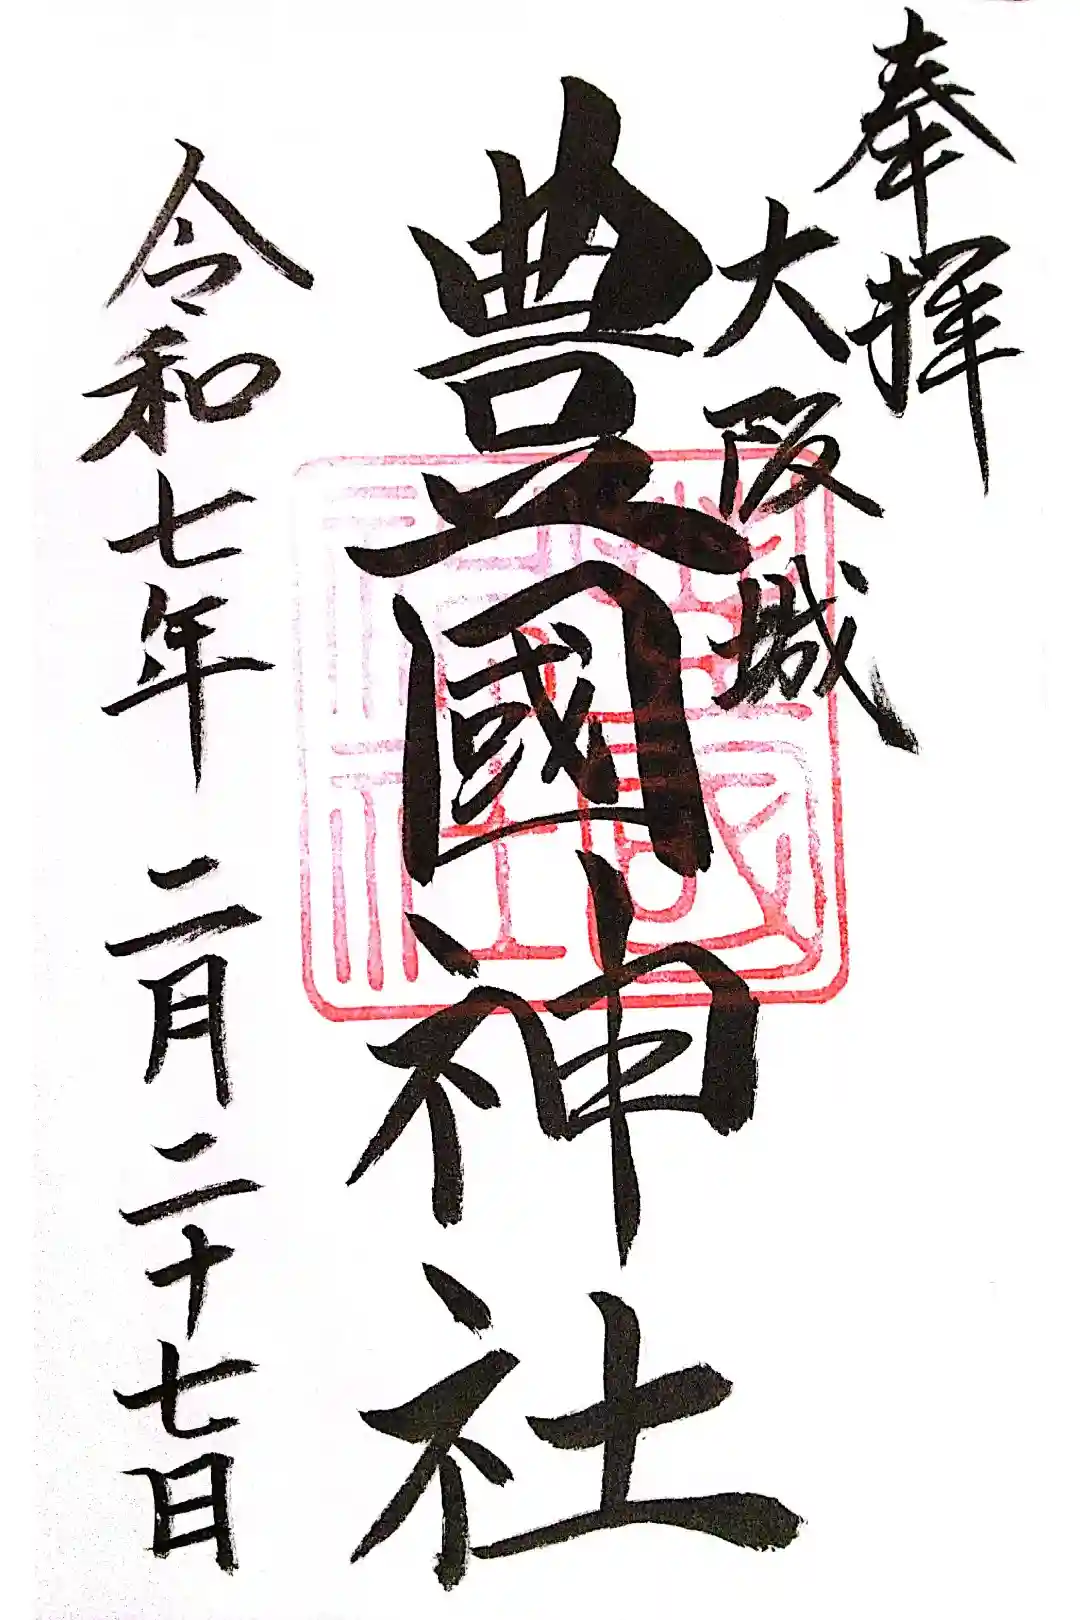 奉拝
大阪城
豊國神社
令和七年 二月二十七日
豊國
神社